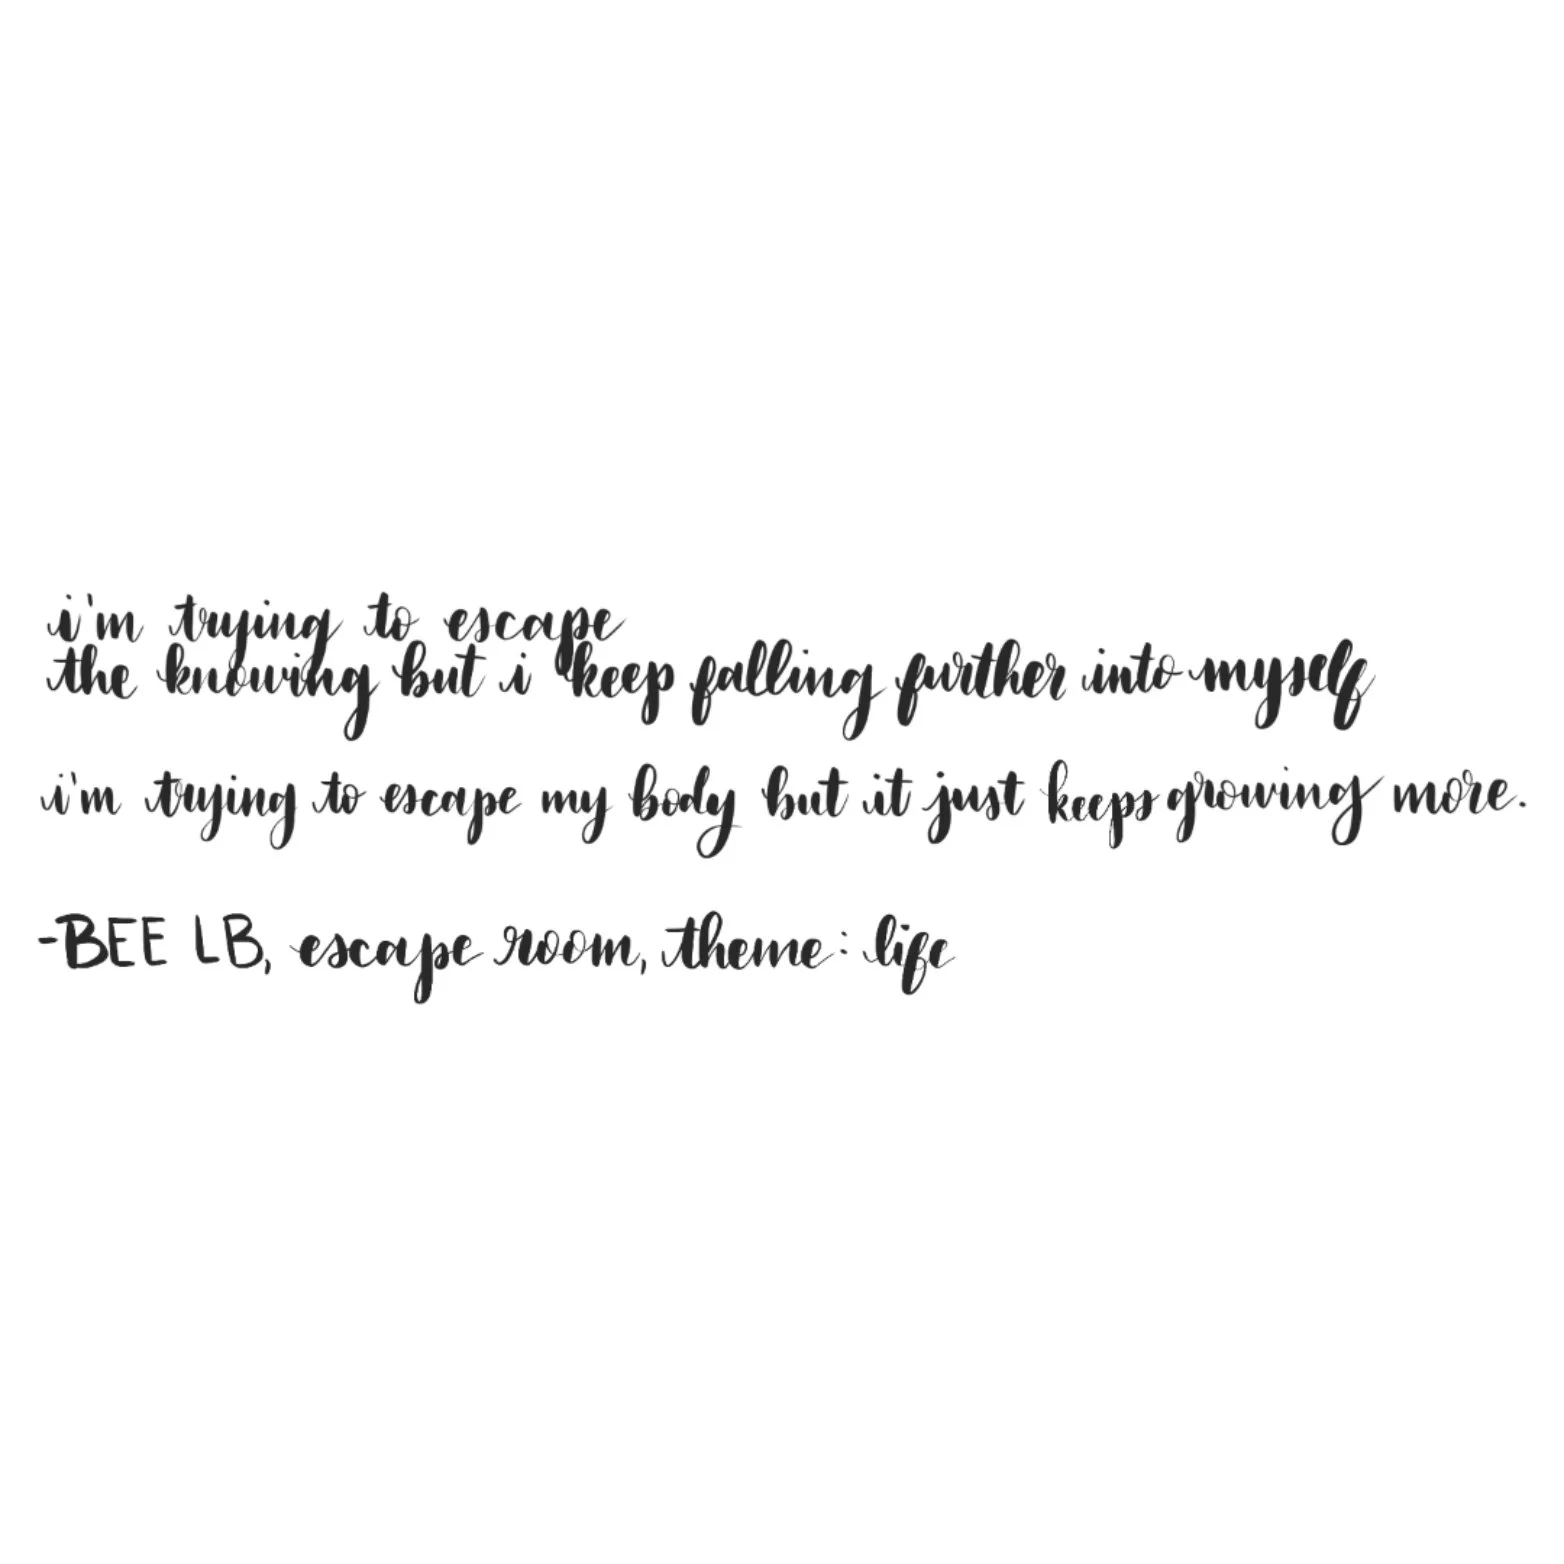 i'm trying to escape
the knowing but i keep falling further into myself
i'm trying to escape my body but it just keeps growing more.
-BEE LB, escape room, theme: life